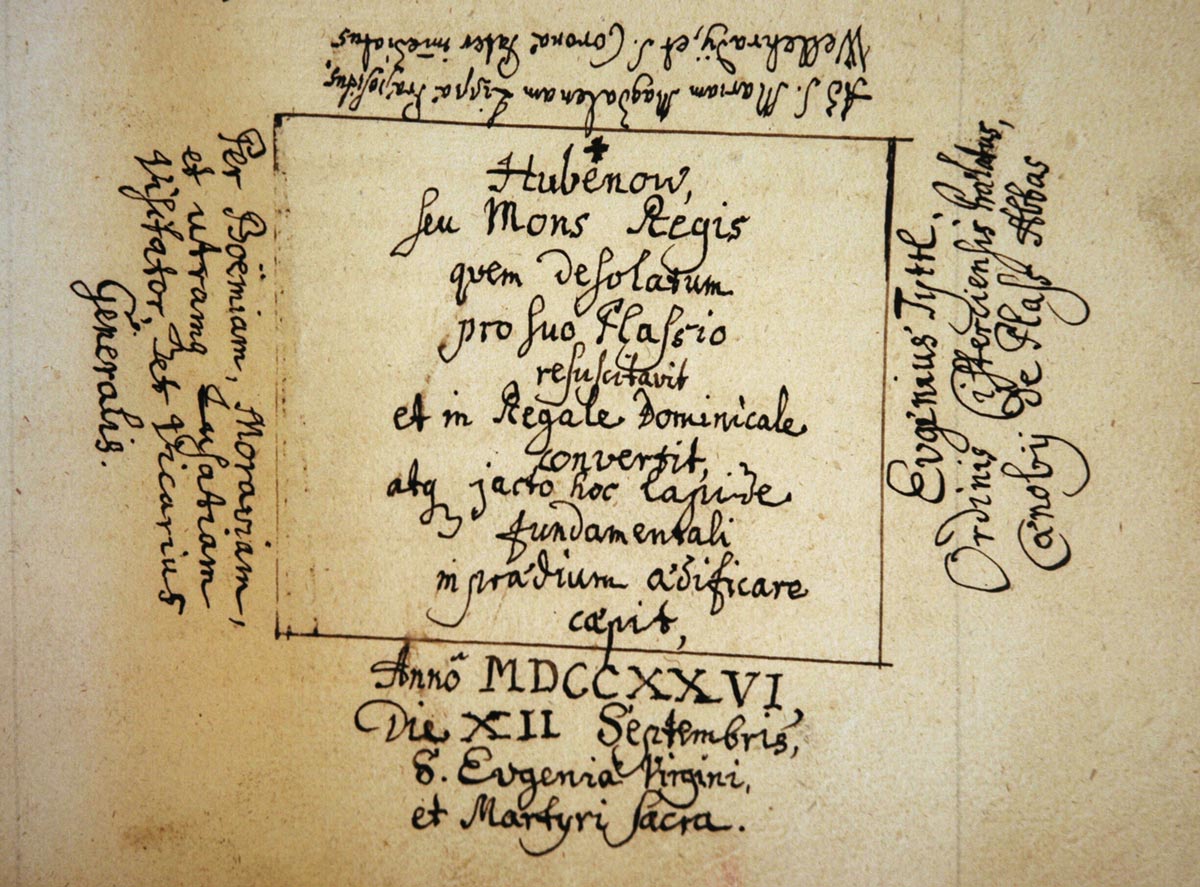 Hubenow,
seu Mons Regis
quem desolatum
pro suo Plassio
resuscitavit
et in Regale Dominicale
convertit,
atq jacto hoc lapide
fundamentali
in prædium ædificare
cæpit,
Annô MDCCXXVI,
Die XII Septembris,
S. Evgeniæ Virgini,
et Martyri Sacra.
Evgenius Tyttl.
Ordinis Cisterciensis Prælatus,
Cænobij de Plass Abbas
Ad S. Mariam Magdalenam Lippæ Præpositus,
Wellehradij, et S. Coronæ Pater im̄ediatus
Per Boëmiam, Moraviam,
et utramq Lusatiam
Visitator, et Vicarius
Generalis.